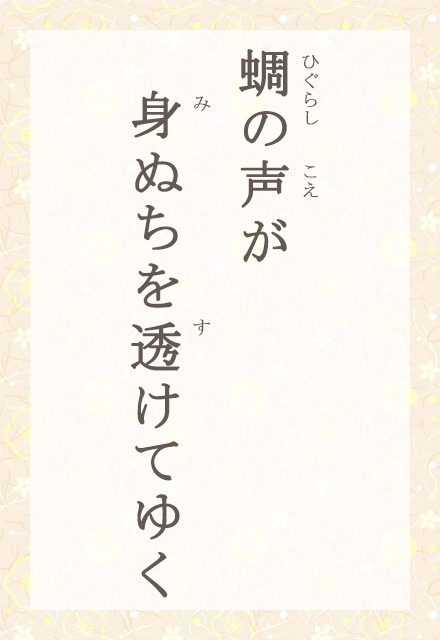 蜩の声が
ひぐらし こえ
身ぬちを透けてゆく
み す